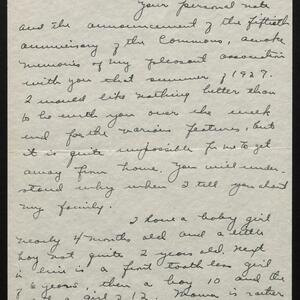 Your personal note
and the announcement of the fiftieth
anniversary of the Commons, awoke
memories of my pleasant association
with you that summer of 1927.
I would like nothing better than
to be with you over the week
end for the various features, but
it is quite impossible for me to get
away from home. You will under-
stand why when I tell you about
my family.
I have a baby girl
nearly 4 months old and a little
boy not quite 2 years old. Next
in line is a front toothless girl
7 6 years, then a boy 10 and the
a girl 12. Mama is rather